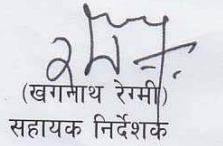 (खगनाथ रेग्मी)
सहायक निर्देशक